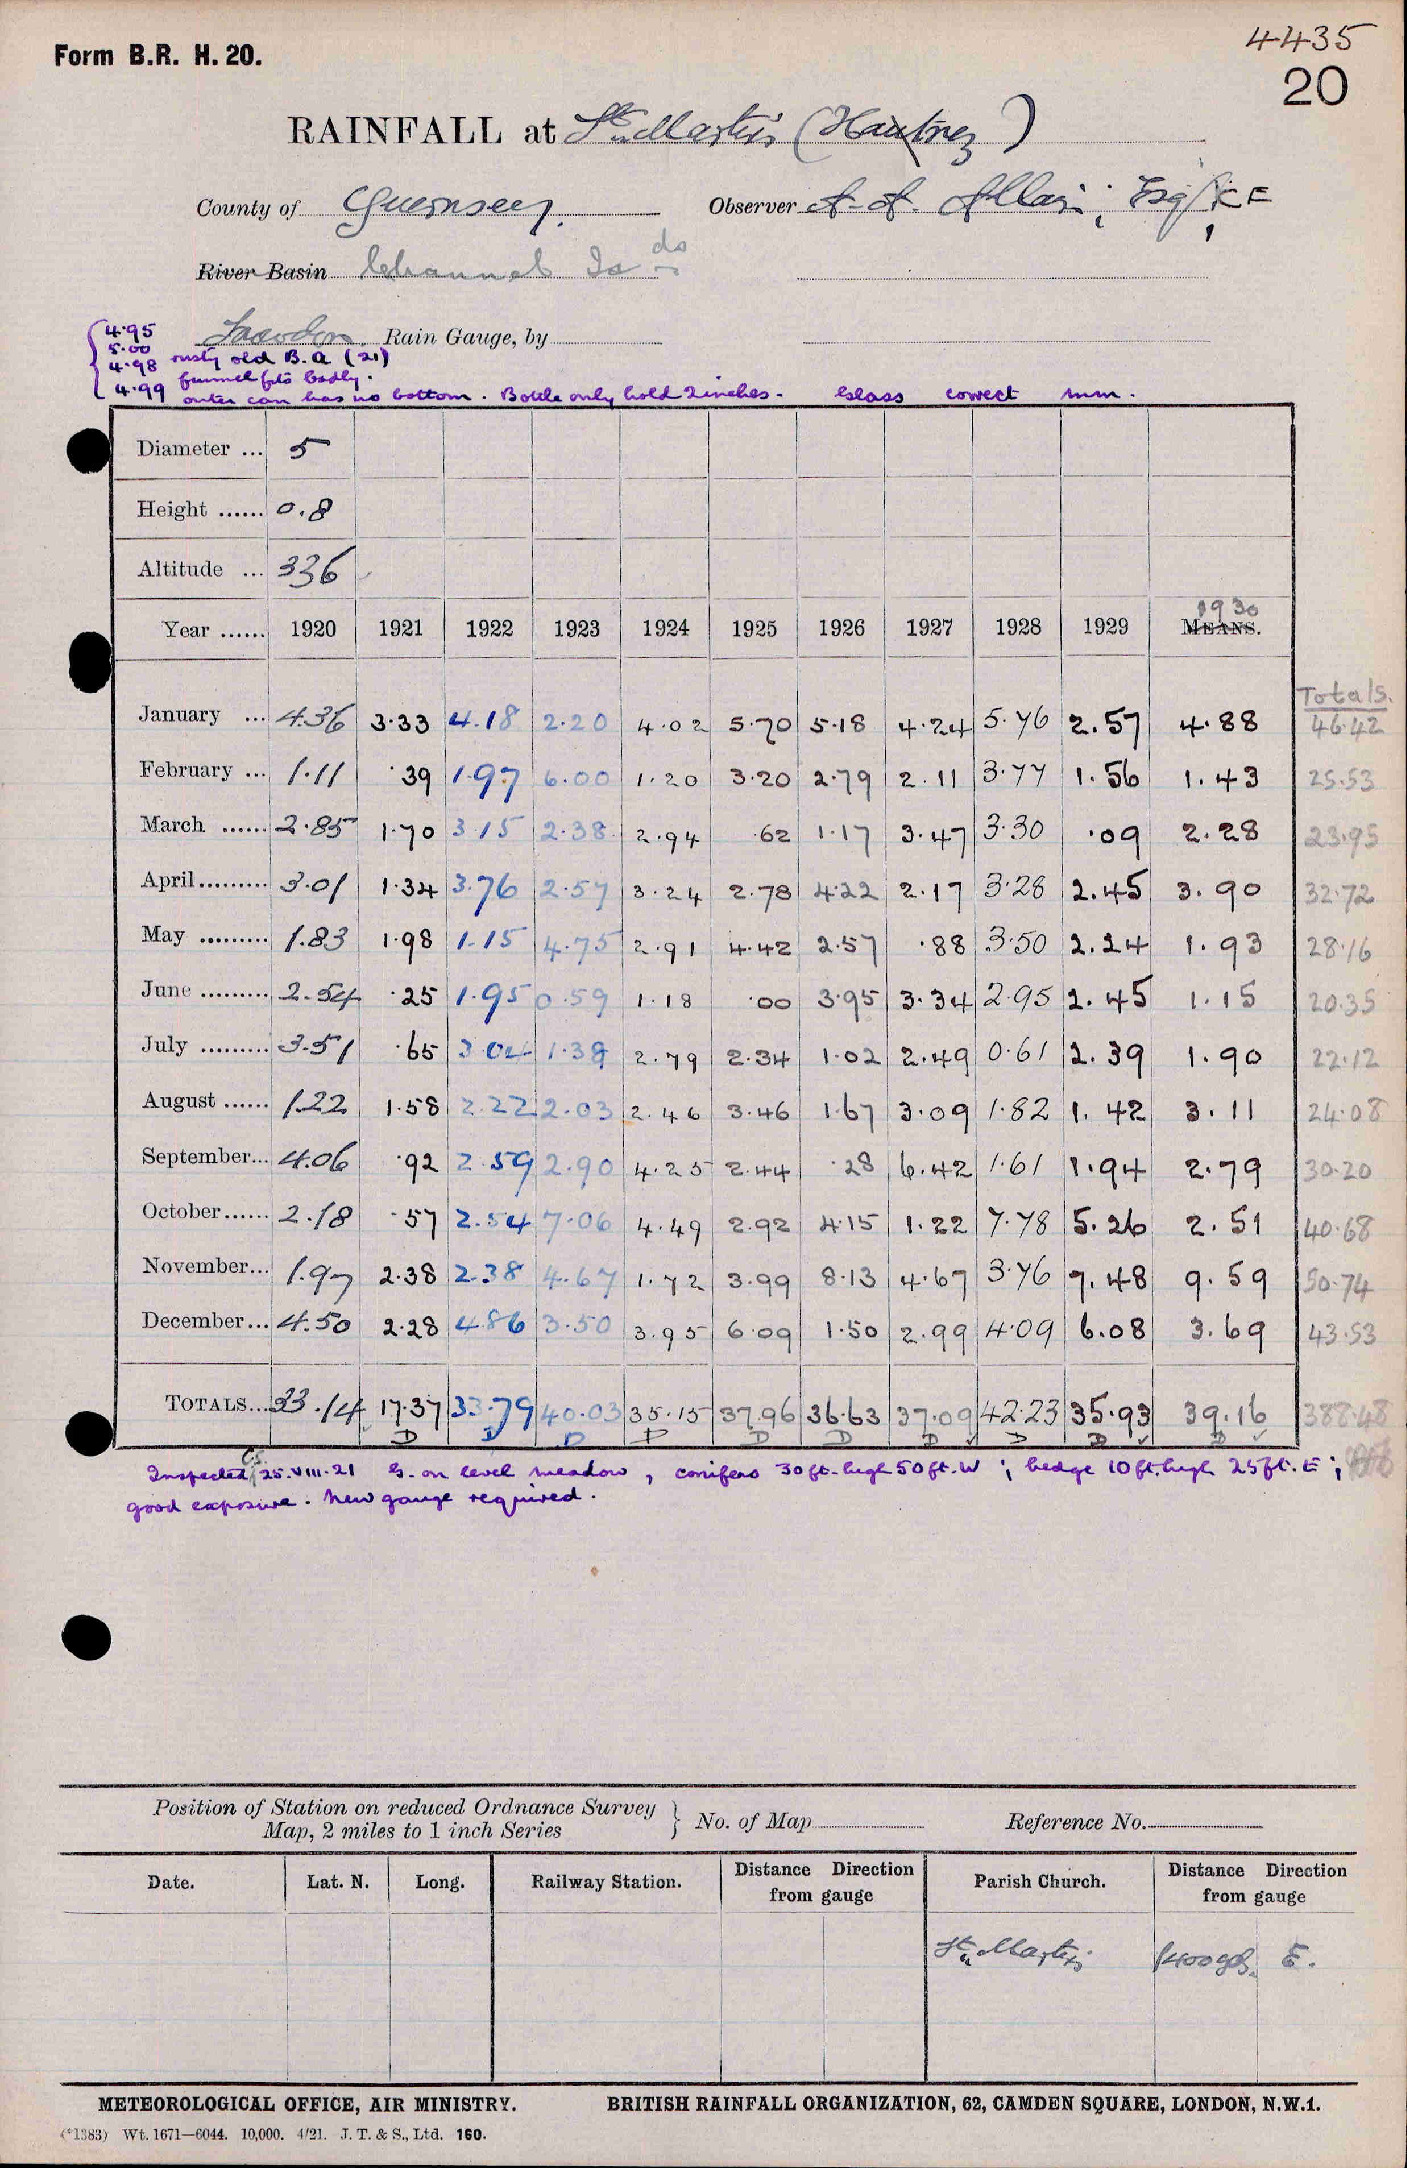 4435
Form B.R. H. 20.
20
RAINFALL at St. Martin's (Hautnez)
County of Guernsey. Observer A. A. Allain, Esq, KE
River Basin Channel Is ds
Snowdon Rain Gauge, by
4.95
5.00
4.98 rusty old B.A (21)
4.99 funnel fits badly.
outer can has no bottom. Bottle only hold 2 inches. Glass correct mm.
Diameter ... 5
Height ...... 0.8
Altitude ... 336
1930
Year ...... 1920 1921 1922 1923 1924 1925 1926 1927 1928 1929 MEANS.
Totals.
January ... 4.36 3.33 4.18 2.20 4.02 5.70 5.18 4.24 5.76 2.57 4.88 46.42
February ... 1.11 .39 1.97 6.00 1.20 3.20 2.79 2.11 3.77 1.56 1.43 25.53
March ...... 2.85 1.70 3.15 2.38 2.94 .62 1.17 3.47 3.30 .09 2.28 23.95
April ......... 3.01 1.34 3.76 2.57 3.24 2.78 4.22 2.17 3.28 2.45 3.90 32.72
May ......... 1.83 1.98 1.15 4.75 2.91 4.42 2.57 .88 3.50 2.24 1.93 28.16
June ......... 2.54 .25 1.95 0.59 1.18 .00 3.95 3.34 2.95 2.45 1.15 20.35
July ......... 3.51 .65 3.04 1.38 2.79 2.34 1.02 2.49 0.61 2.39 1.90 22.12
August ...... 1.22 1.58 2.22 2.03 2.46 3.46 1.67 3.09 1.82 1.42 3.11 24.08
September... 4.06 .92 2.59 2.90 4.25 2.44 .28 6.42 1.61 1.94 2.79 30.20
October ...... 2.18 .57 2.54 7.06 4.49 2.92 4.15 1.22 7.78 5.26 2.51 40.68
November... 1.97 2.38 2.38 4.67 1.72 3.99 8.13 4.67 3.76 7.48 9.59 50.74
December ... 4.50 2.28 4.86 3.50 3.95 6.09 1.50 2.99 4.09 6.08 3.69 43.53
TOTALS... 33.14 17.37 33.79 40.03 35.15 37.96 36.63 37.09 42.23 35.93 39.16 388.48
D D D D D D D D D D
Inspected C.S. 25.VIII.21 G. on level meadow, conifers 30ft. high 50ft. W; hedge 10ft. high 25ft. E;
good exposure. New gauge required.
Position of Station on reduced Ordnance Survey
Map, 2 miles to 1 inch Series } No. of Map Reference No.
Date. Lat. N. Long. Railway Station. Distance Direction from gauge Parish Church. Distance Direction from gauge
St. Martin's 1400 yds. E.
METEOROLOGICAL OFFICE, AIR MINISTRY. BRITISH RAINFALL ORGANIZATION, 62, CAMDEN SQUARE, LONDON, N.W.1.
(*1383) Wt. 1671—6044. 10,000. 4/21. J. T. & S., Ltd. 160.